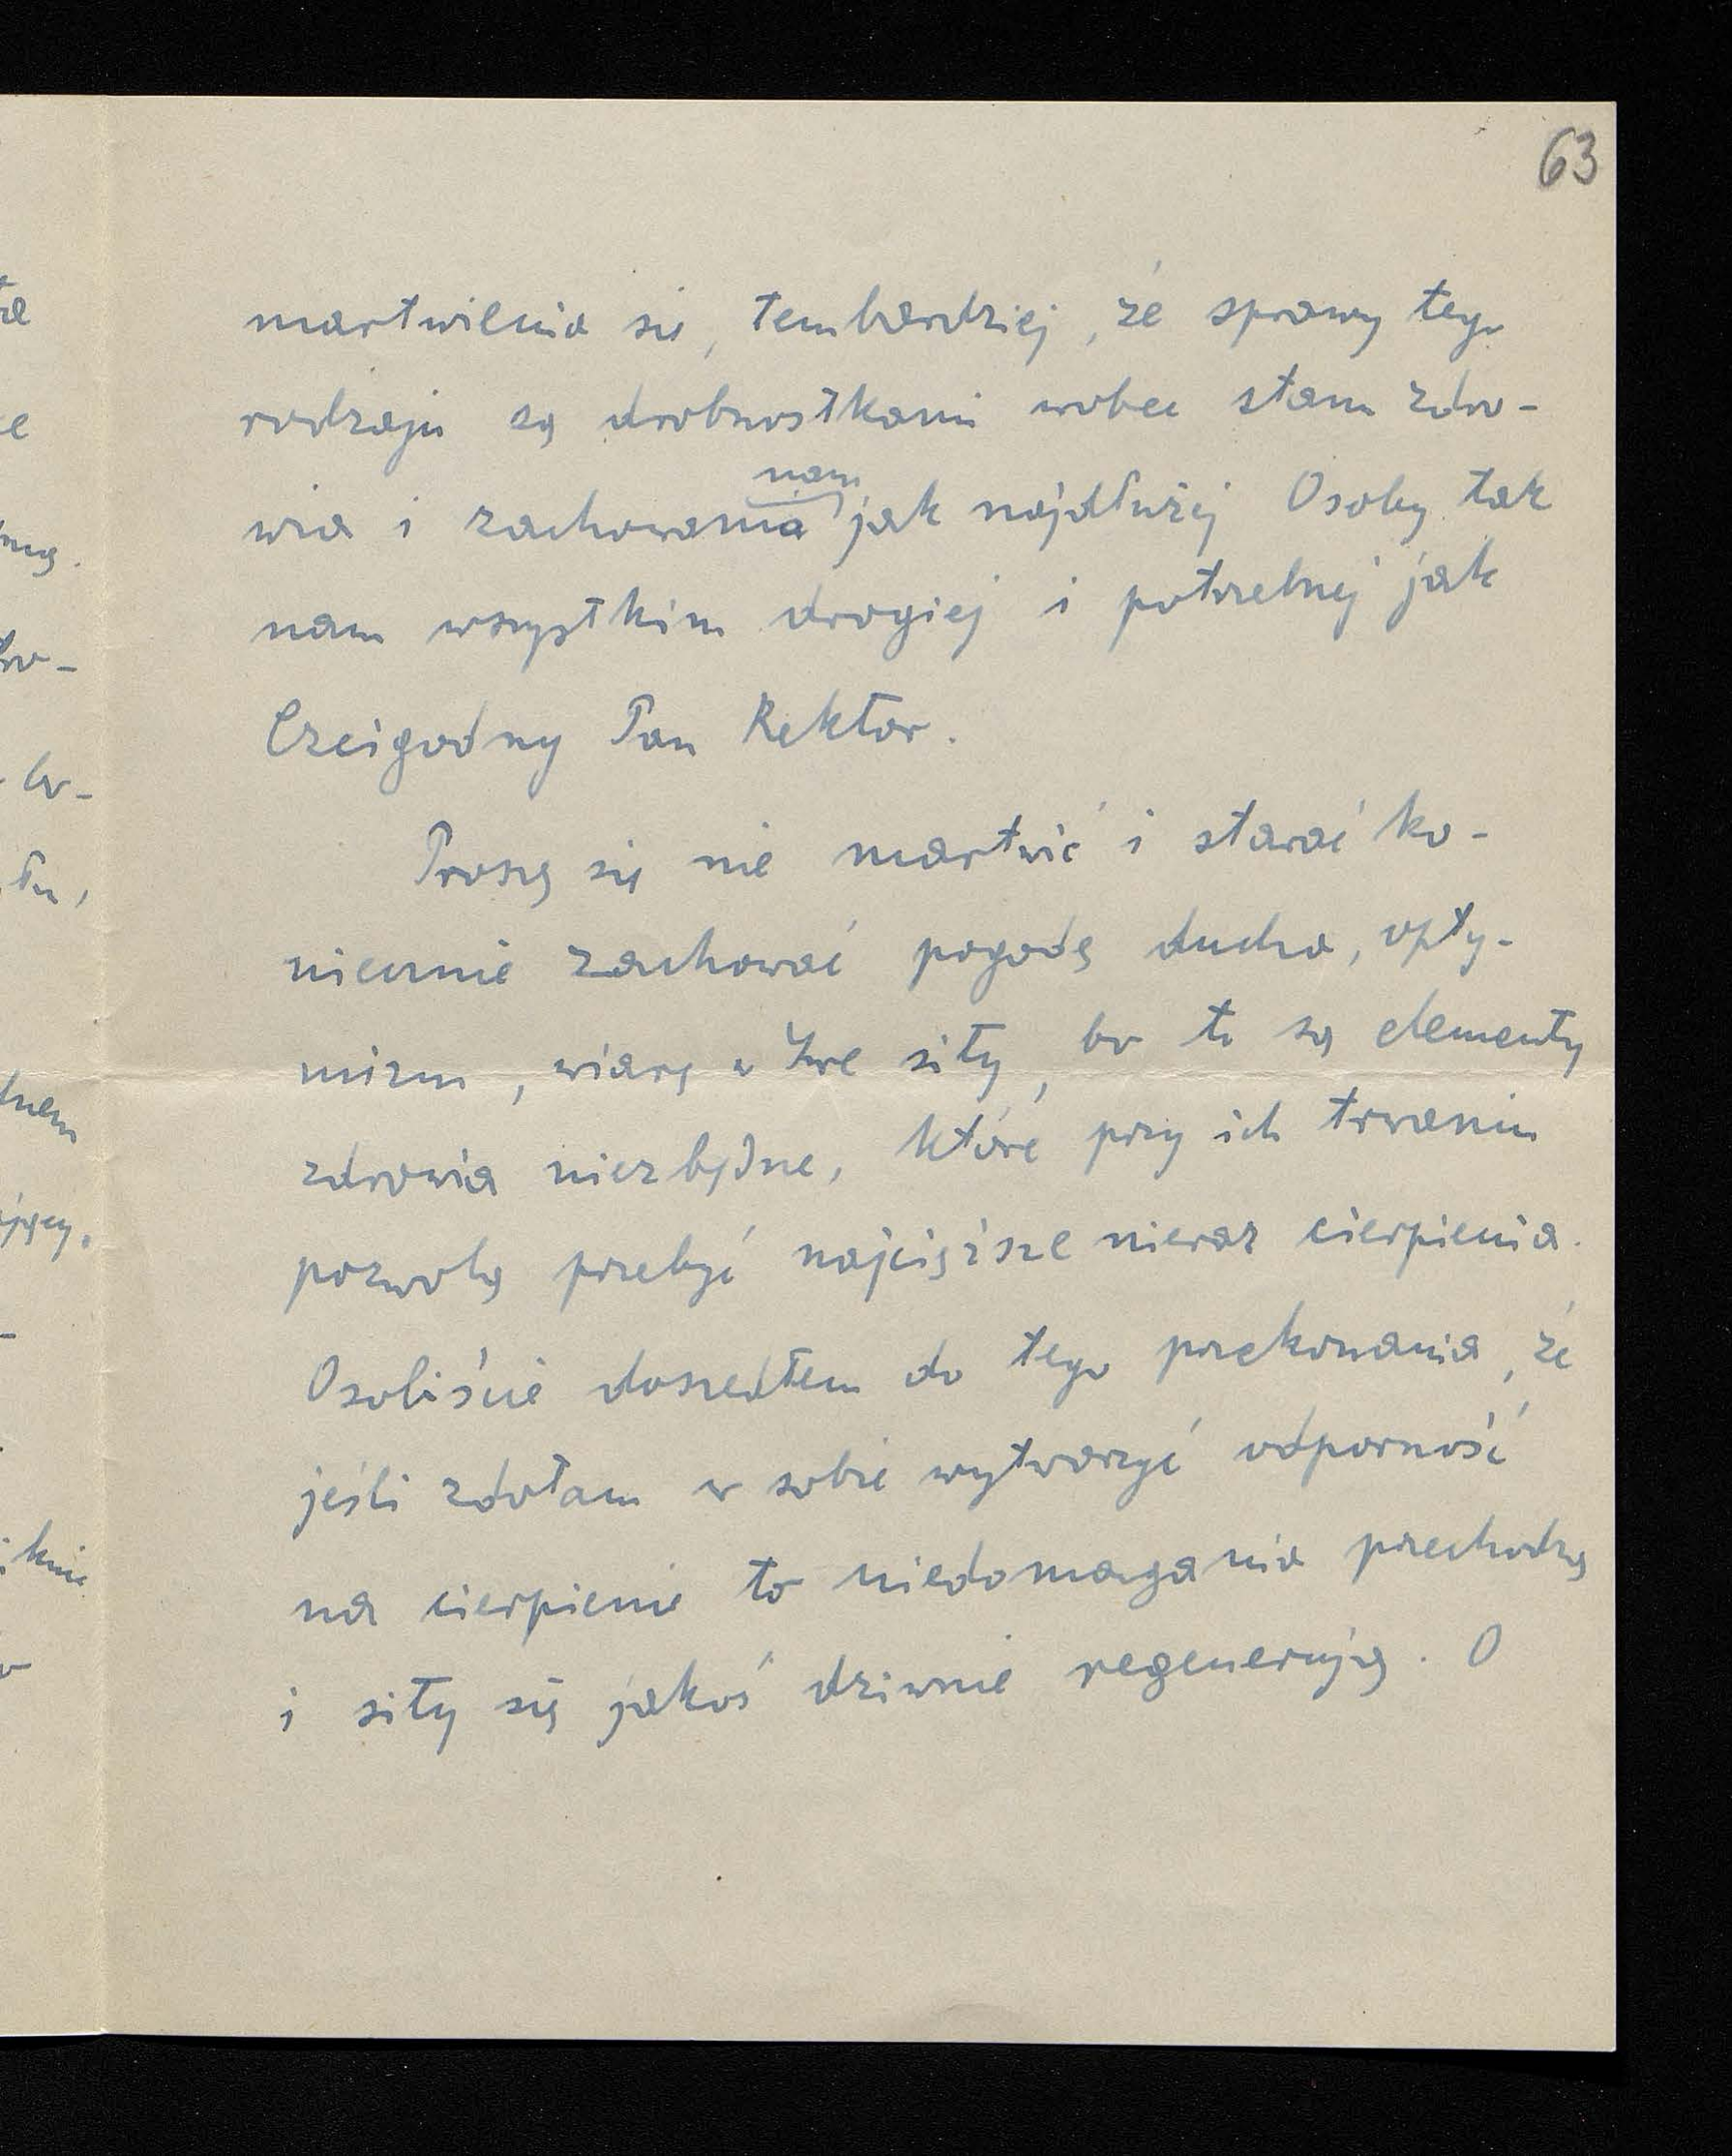 63
martwienia się, tembardziej, że sprawy tego
rodzaju są drobnostkami wobec stanu zdro-
wia i zachowania nam jak najdłużej Osoby tak
nam wszystkim drogiej i potrzebnej jak
Czcigodny Pan Rektor.
Proszę się nie martwić i starać ko-
niecznie zachować pogodę ducha, opty-
mizm, wiarę w Swe siły, bo to są elementy
zdrowia niezbędne, które przy ich trwaniu
pozwolą przebyć najcięższe nieraz cierpienia.
Osobiście doszedłem do tego przekonania, że
jeśli zdołam w sobie wytworzyć odporność
na cierpienie to niedomagania przechodzą
i siły się jakoś dziwnie regenerują. O